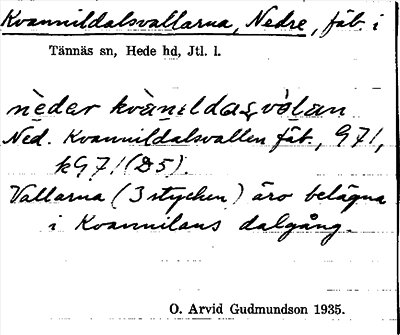 Kvannildalsvallarna, Nedre, fäb. i
Tännäs sn, Hede hd, Jtl. l.
nèder kvànıldasvàlan
Ned. Kvannildalsvallen fäb., G71,
kG71 (D5).
Vallarna (3 stycken) äro belägna
i Kvannilans dalgång.
O. Arvid Gudmundson 1935.